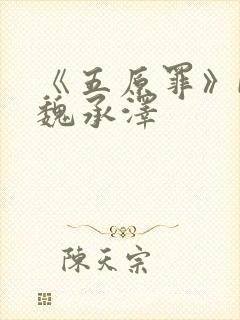 《五原罪》
魏承澤
陳天宗